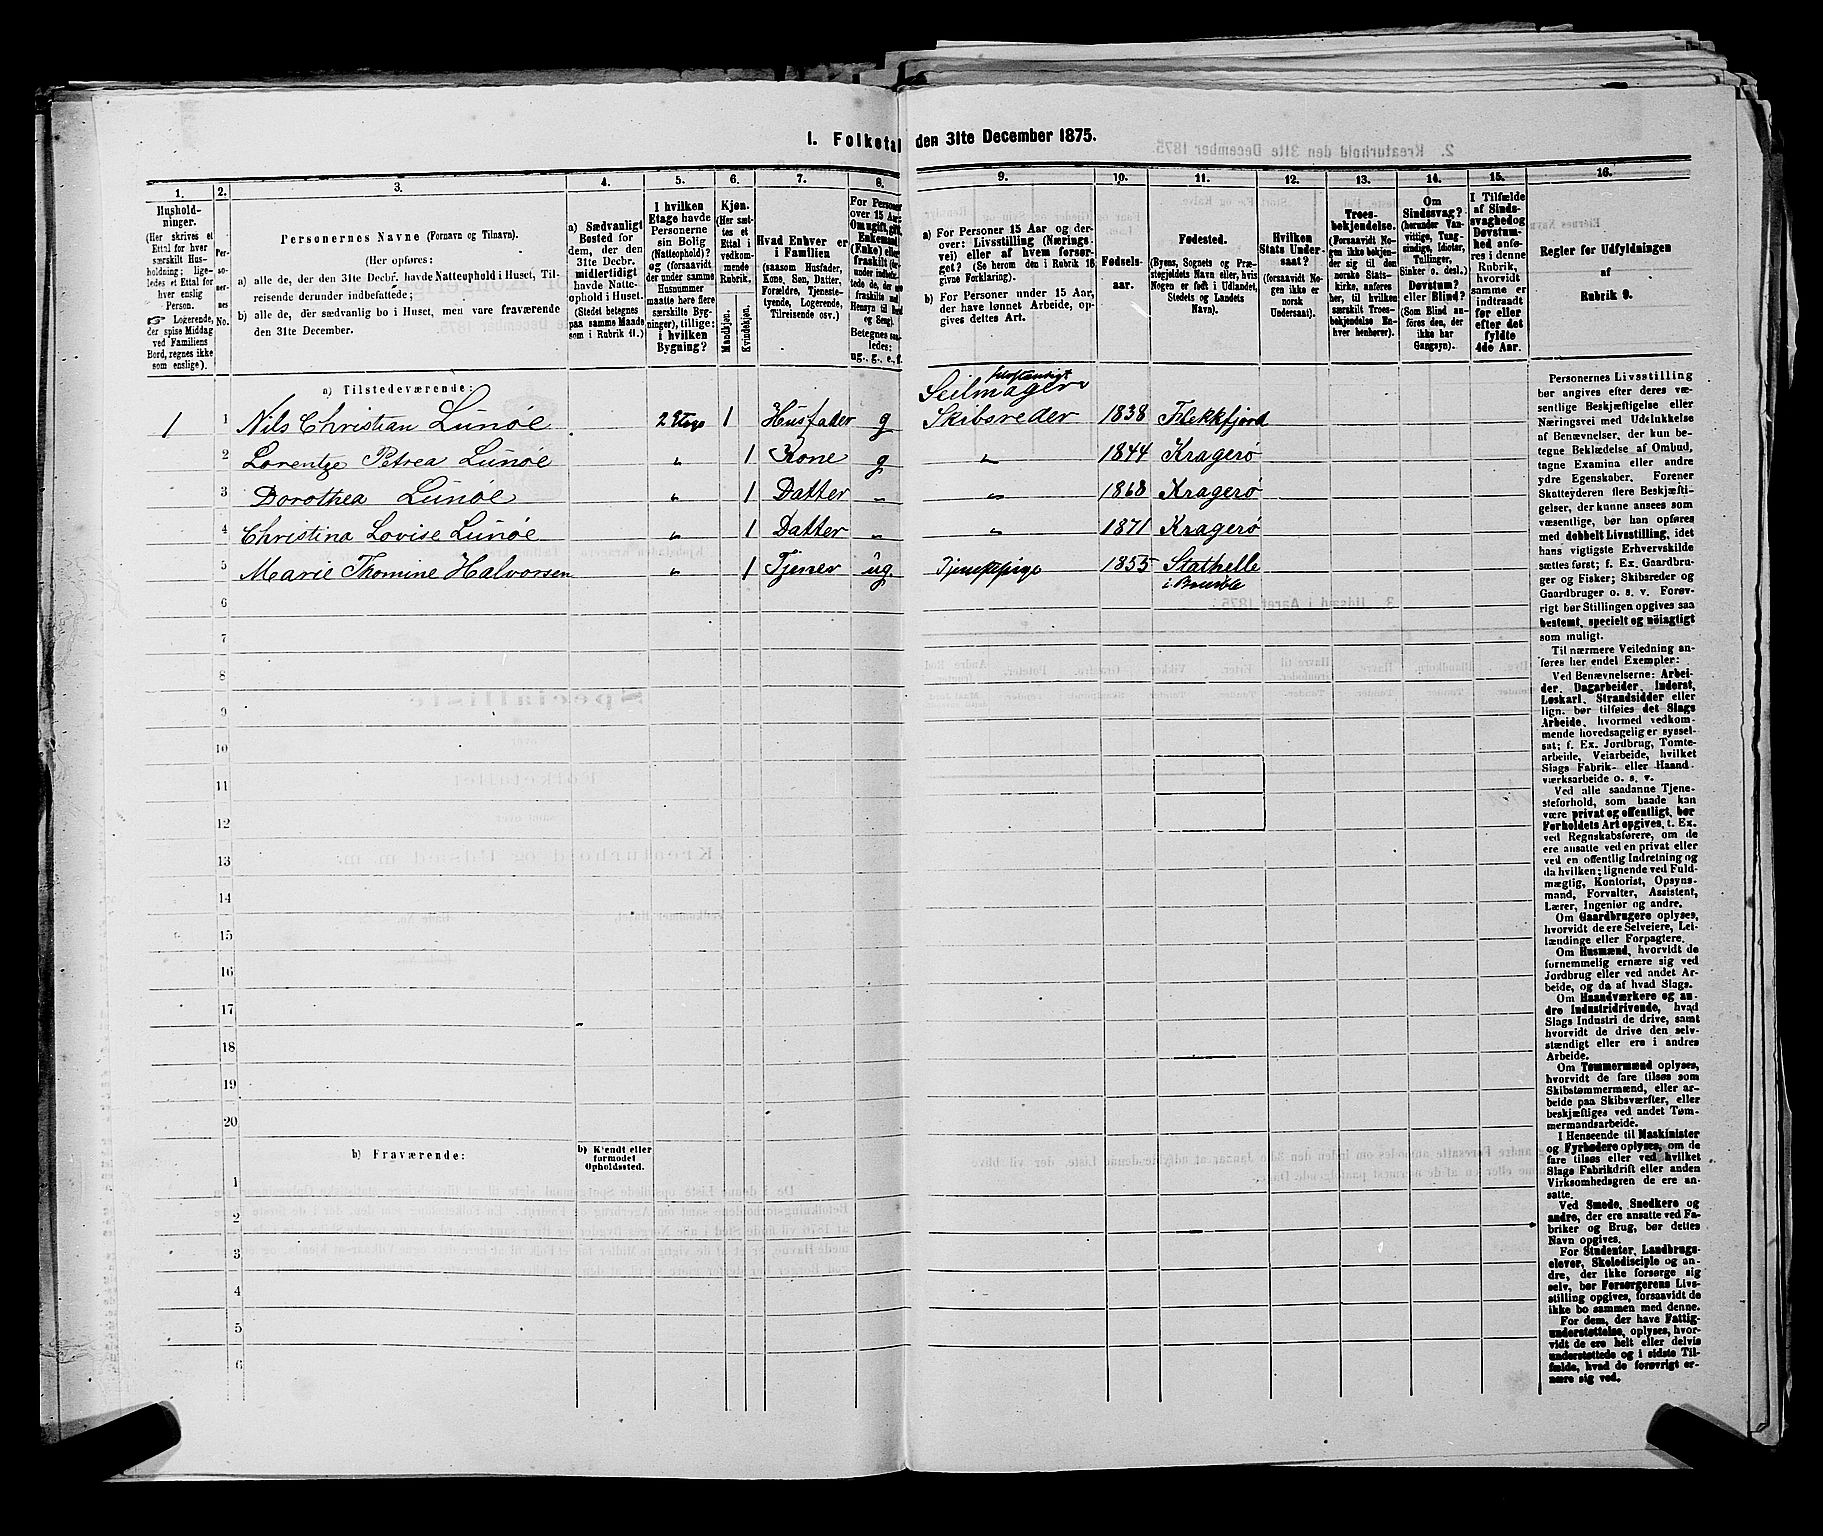 1. Folketal den 31te December 1875.
1. 2. 3. 4. 5. 6. 7. 8. 9. 10. 11. 12. 13. 14. 15. 16.
Hushold-
ninger.
(Her skrives et
Ettal for hver
særskilt Hus-
holdning; lige-
ledes et Ettal for
hver enslig
Person.
Logerende,
der spise Middag
ved Familiens
Bord, regnes ikke
som enslige).
Per-
so-
ner-
nes
No.
Personernes Navne (Fornavn og Tilnavn).
(Her opføres:
a) alle de, der den 31te Decbr. havde Natteophold i Huset, Til-
reisende derunder indbefattede;
b) alle de, der sædvanlig bo i Huset, men vare fraværende
den 31te December.
a) Sædvanligt
Bosted for
dem, der den
31te Decbr.
midlertidigt
havde Natte-
ophold i Huset.
(Stedet betegnes
paa samme Maade
som i Rubrik 11.)
I hvilken
Etage havde
Personerne
sin Bolig
(Natteophold)?
og (forsaavidt
der under samme
Husnummer
maatte høre flere
særskilte Byg-
ninger), tillige:
i hvilken
Bygning?
Kjøn.
(Her sæt-
tes et
Ettal i
vedkom-
mende
Rubrik.)
Mandkjøn.
Kvindekjøn.
Hvad Enhver er
i Familien
(saasom Husfader,
Kone, Søn, Datter,
Forældre, Tjeneste-
tyende, Logerende,
Tilreisende osv.)
For Personer
over 15 Aar:
Om ugift, gift,
Enkemand
(Enke) eller
fraskilt
Betegnes saa-
ledes:
ug., g., e., f.
a) For Personer 15 Aar og der-
over: Livsstilling (Nærings-
vei) eller af hvem forsør-
get? (Se herom den i Rubrik 16
givne Forklaring).
b) For Personer under 15 Aar,
der have lønnet Arbeide, op-
gives dettes Art.
Fødsels-
aar.
Fødested.
(Byens, Sognets og Præ-
stegjeldets Navn eller, hvis
Nogen er født i Udlandet,
Stedets og Landets
Navn).
Hvilken
Stats Under-
saat?
(forsaavidt No-
gen ikke er
norsk
Undersaat).
Troes-
bekjendelse.
(Forsaavidt No-
gen ikke bekjen-
der sig til den
norske Stats-
kirke, anføres
her, til hvilken
særskilt Troes-
bekjendelse En-
hver henhører).
Om
Sindssvag?
(herunder Van-
vittige, Tung-
sindige, Idioter,
Tullinger,
Sinker o. desl.)
Døvstum?
eller Blind?
(Som Blind an-
føres den, der
ikke har
Gangsyn).
I Tilfælde
af Sinds-
svaghed og
Døvstum-
hed anfø-
res i denne
Rubrik,
hvorvidt
samme er
indtraadt
før eller
efter det
fyldte
4de Aar.
Regler for Udfyldningen
af
Rubrik 9.
a) Tilstedeværende:
Seilmager
1 1 Nils Christian Lunøe 2 Etage 1 Husfader g Skibsreder 1838 Flekkfjord
2 Lorentze Petrea Lunøe " 1 Kone g " 1844 Kragerø
3 Dorothea Lunøe " 1 Datter " " 1868 Kragerø
4 Christina Lovise Lunøe " 1 Datter " " 1871 Kragerø
5 Marie Thomine Halvorsen " 1 Tjener ug. Tjenestepige 1855 Stathelle
i Bamble
6
7
8
9
10
11
12
13
14
15
16
17
18
19
20
b) Fraværende:
b) Kjendt eller
formodet
Opholdssted.
1
2
3
4
5
6
Personernes Livsstilling
bør angives efter deres væ-
sentlige Beskjæftigelse eller
Næringsvei med Udelukkelse
af Benævnelser, der kun be-
tegne Beklædelse af Ombud,
tagne Examina eller andre
ydre Egenskaber. Forener
Skatteyderen flere Beskjæfti-
gelser, der kunne ansees som
væsentlige, bør han opføres
med dobbelt Livsstilling, idet
hans vigtigste Erhvervskilde
sættes først; f. Ex. Gaardbru-
ger og Fisker; Skibsreder og
Gaardbruger o. s. v. Forøv-
rigt bør Stillingen opgives saa
bestemt, specielt og nøiagtigt
som muligt.
Til nærmere Veiledning an-
føres her endel Exempler:
Ved Benævnelserne: Arbei-
der, Dagarbeider, Inderst,
Løskarl, Strandsidder eller
lign. bør tilføies det Slags
Arbeide, hvormed vedkom-
mende hovedsagelig er syssel-
sat; f. Ex. Jordbrug, Tomte-
arbeide, Veiarbeide, hvilket
Slags Fabrik- eller Haand-
værksarbeide o. s. v.
Ved alle saadanne Tjene-
steforhold, som baade kan
være privat og offentligt, bør
Forholdets Art opgives, t. Ex.
ved Regnskabsførere, om de
ere ansatte ved en privat eller
ved en offentlig Indretning og
da hvilken; lignende ved Fuld-
mægtig, Kontorist, Opsyns-
mand, Forvalter, Assistent,
Lærer, Ingeniør og andre.
Om Gaardbrugere oplyses,
hvorvidt de ere Selveiere, Lei-
lændinge eller Forpagtere.
Om Husmænd, hvorvidt de
fornemmelig ernære sig ved
Jordbrug eller ved andet Ar-
beide, og da af hvad Slags.
Om Haandværkere og an-
dre Industridrivende, hvad
Slags Industri de drive, samt
hvorvidt de drive den selv-
stændigt eller ere i andres
Arbeide.
Om Tømmermænd oplyses,
hvorvidt de fare tilsøs som
Skibstømmermænd, eller ar-
beide paa Skibsværfter, eller
beskjæftiges ved andet Tøm-
mermandsarbeide.
I Henseende til Maskinister
og Fyrbødere oplyses, om de
fare tilsøs eller ved hvilket
Slags Fabrikdrift eller anden
Virksomhedsgren de ere an-
satte.
Ved Smede, Snedkere og
andre, der ere ansatte ved Fa-
briker og Brug, bør dettes
Navn opgives.
For Studenter, Landbrugs-
elever, Skoledisciple og an-
dre, der ikke forsørge sig
selv, bør Forsørgerens Livs-
stilling opgives, forsaavidt de
ikke bo sammen med denne.
For dem, der have Fattig-
understøttelse, oplyses, hvor-
vidt de ere helt eller delvis
understøttede og i sidste Til-
fælde, hvad de forøvrigt er-
nære sig ved.